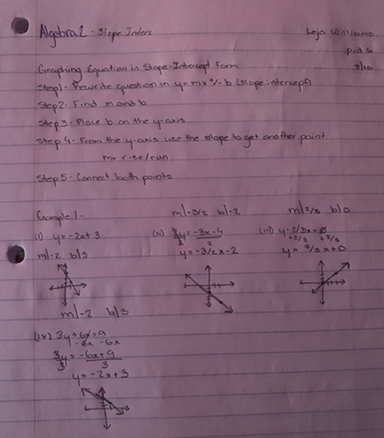 Algebra 2 - Slope Inters
Leja Williams
pid 6
3/10
Graphing Equation in Slope-Intercept Form
Step1- Rewrite question in y = mx +/- b (slope intercept)
Step2- Find m and b
Step 3- Place b on the y-axis
Step 4- From the y-axis use the slope to get another point
m= rise/run
Step 5- Connect both points
Example 1-
(i) y = -2x+3
m|-2 b|3
m|-3/2 b|-2
(ii) 2y = -3x-4
2 2
y = -3/2x-2
m|2/3 b|0
(iii) y-2/3x=0
+2/3 +2/3
y = 2/3x+0
m|-2 b|3
(iv) 3y+6x=9
-6x -6x
3y = -6x+9
3 3
y = -2x+3